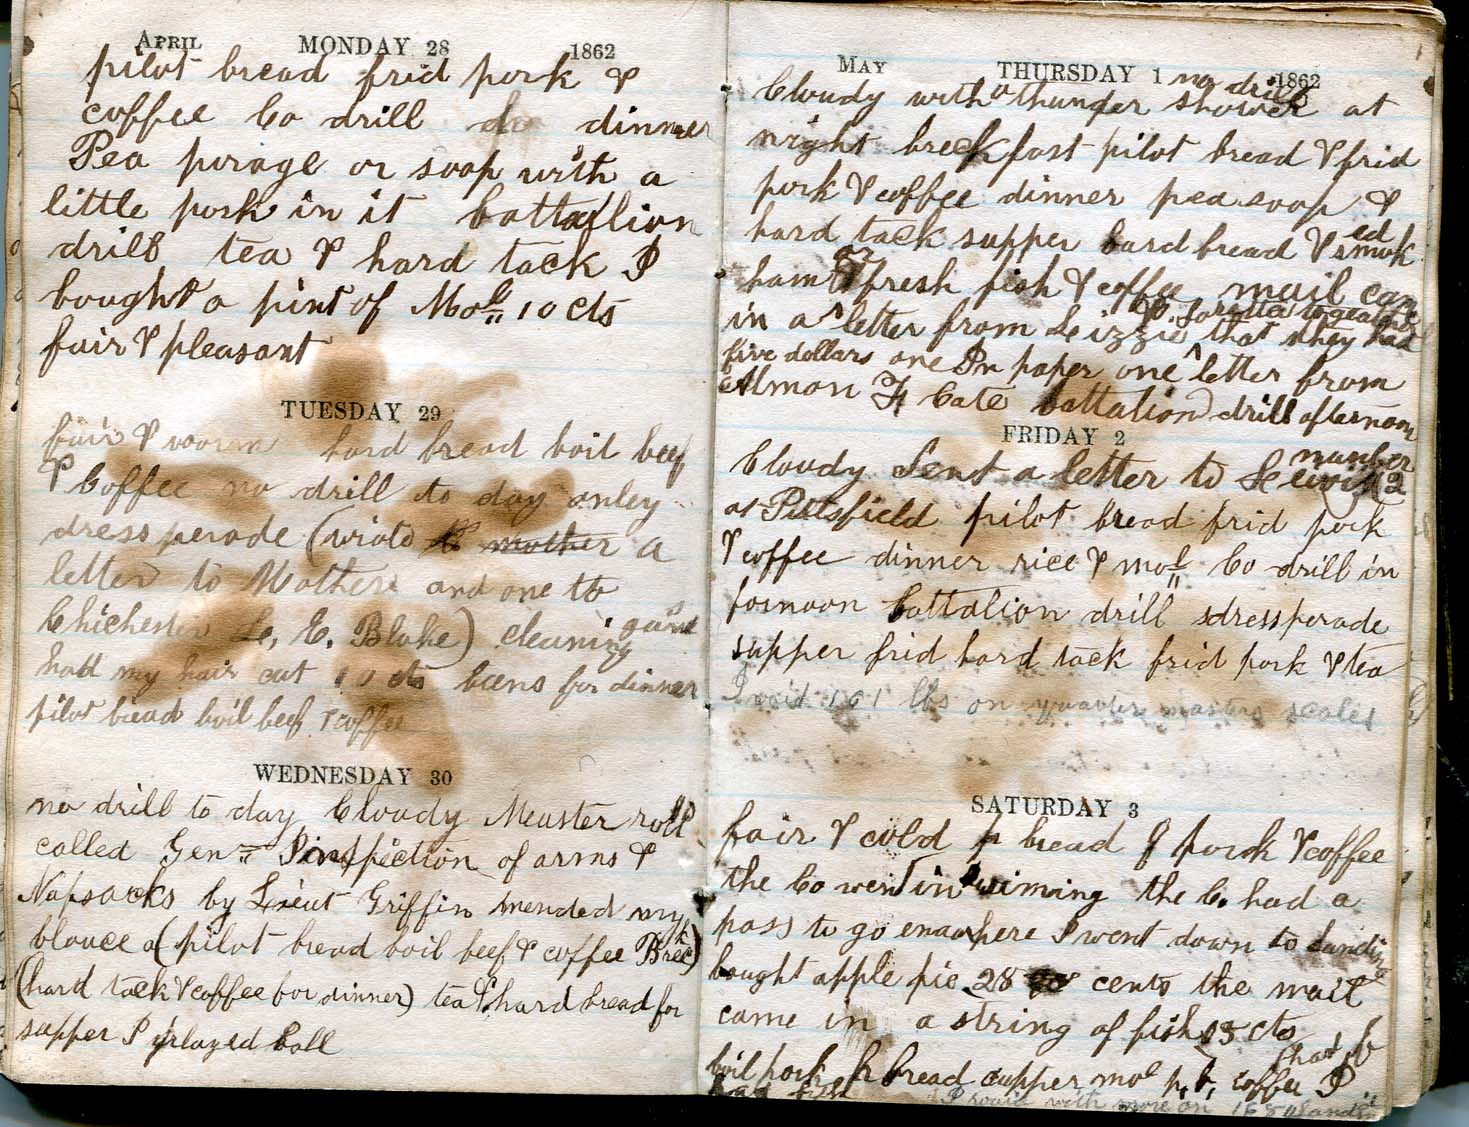 APRIL MONDAY 28 1862
pilot bread frid pork &
coffee Co drill dinner
Pea porage or soop with a
little pork in it battallion
drill tea & hard tack I
bought a pint of Mol 10 cts
fair & pleasant
TUESDAY 29
fair & woorm hard bread boil beef
& Coffee no drill to day onley
dress perade (wrote to mother a
letter to Mother and one to
Chichester L. E. Blake) cleaning guns
hadd my hair cut 10 cts beens for dinner
pilot bread boil beef & coffee
WEDNESDAY 30
no drill to day Cloudy Meuster roll
called Gen Pinspection of arms &
Napsacks by Lieut Griffin mended my
blouce a (pilot bread boil beef & coffee Brek)
(hard tack & coffee for dinner) tea & hard bread for
supper I played ball
MAY THURSDAY 1 1862
no drill
Cloudy with a thunder shower at
night breckfast pilot bread & frid
pork & coffee dinner pea soop &
hard tack supper hard bread & smoked
ham or fresh fish & coffee mail came
in a letter from Lizzie that they had
five dollars one In paper one letter from
Almon F. Cate battalion drill afternoon
FRIDAY 2
Cloudy Sent a letter to Lewis number 2
at Pittsfield pilot bread frid pork
& coffee dinner rice & mol Co drill in
fornoon battalion drill dressperade
supper frid hard tack frid pork & tea
I waid 161 lbs on quarter masters scales
SATURDAY 3
fair & cold p bread f pork & coffee
the Co went in swiming the Co had a
pass to go enawhere I went down to landing
bought apple pie 28 cents the mail
came in a string of fish 25 cts
boil pork h bread supper mol p. b. coffee I